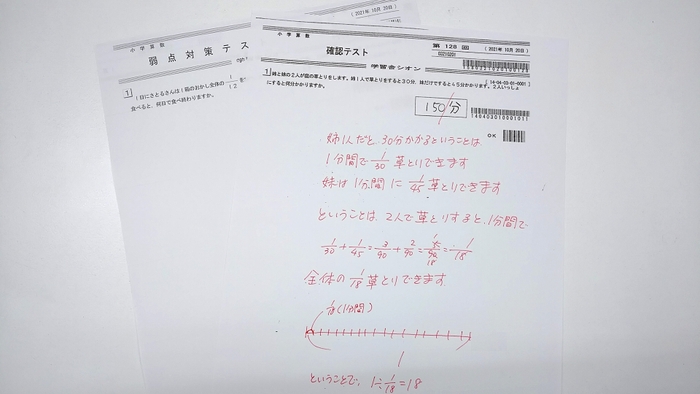 小学算数
弱点対策テス
(2021年 10月 20日)
1
1日にさとるさんは1箱のおかし全体の
1/12を
食べると、何日で食べ終わりますか。
小学算数
確認テスト
第 128 回
(2021年 10月 20日)
学習舎シオン
1 姉と妹の2人が庭の草とりをします。姉1人で草とりをすると30分、妹だけですると45分かかります。2人いっしょ
にすると何分かかりますか。
[14-04-03-01-0001]
150分
OK
姉1人だと、30分かかるということは
1分間で 1/30 草とりできます
妹は 1分間に 1/45 草とりできます
ということは、2人で草とりすると、1分間で
1/30+1/45=3/90+2/90=5/90=1/18
全体の 1/18 草とりできます.
1/18(1分間)
1
ということで、1÷1/18=18